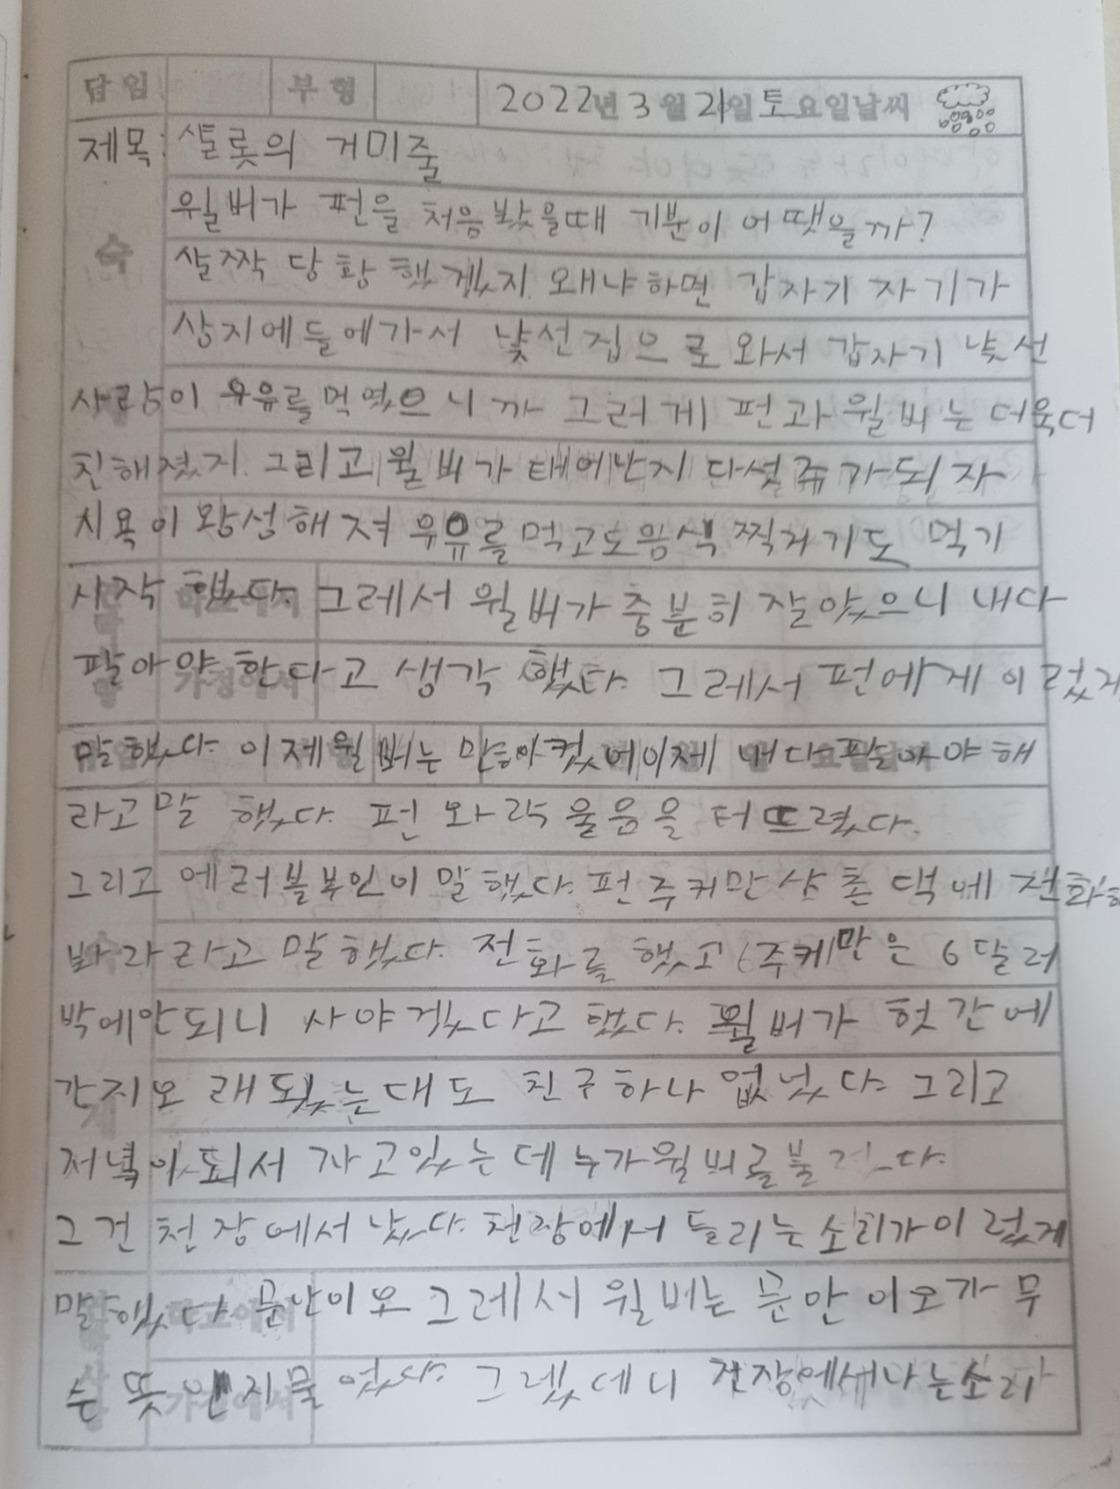 담임 부형 2022년 3월 21일 토요일 날씨
제목: 샬롯의 거미줄
윌버가 펀을 처음 봤을때 기분이 어땟을까?
살짝 당황 했겠지 왜냐하면 갑자기 자기가
상지에들에가서 낯선집으로 와서 갑자기 낯선
사람이 우유를 먹였으니까 그러게 펀과 윌버는 더욱더
친해졌지. 그리고 윌버가 태어난지 다섯쭈가되자
식욕이 왕성해져 우유를 먹고도 음식 찍꺼기도 먹기
시작 했다. 그레서 윌버가 충분히 잘았으니 내다
팔아야 한다고 생각 했다. 그레서 펀에게 이렀게
말했다. 이제윌버는 만이컷어이제 내다 팔아야 해
라고 말 했다. 펀 와락 울음을 터뜨렸다.
그리고 에러블부인이 말했다. 펀 주커만 삼촌 댁에 전화해
바라라고 말했다. 전화를 했고 주케만은 6달러
박에안되니 사야겠다고 했다. 윌버가 헛간에
간지오래됬는대도 친구하나 없넜다. 그리고
저녁이되서 자고있는데 누가윌버를불렀다.
그건 천장에서 났다. 천장에서 들리는소리가이렀게
말했다 문난이오 그레서 윌버는 문안이오가 무
슨 뜻인지물었다. 그랬더니 천장에서나는소리가